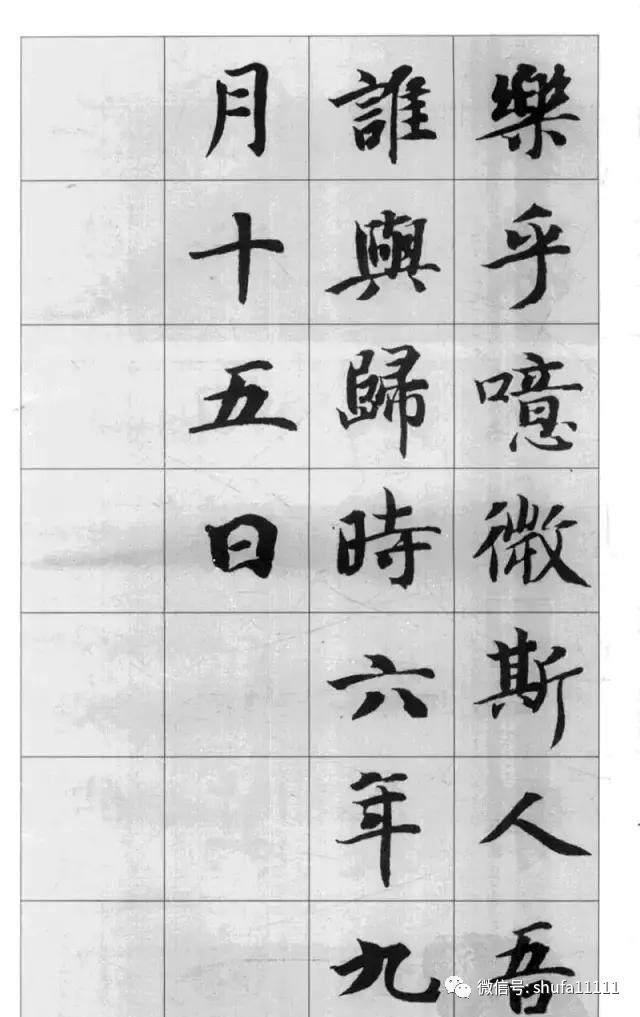 樂乎噫微斯人吾
誰與歸時六年九
月十五日
微信号: shufa11111